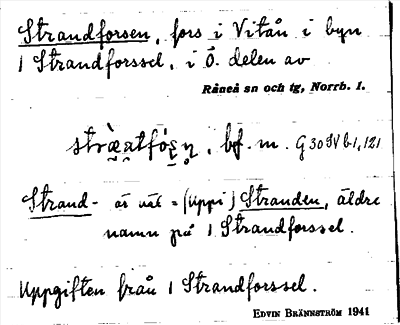 Strandforsen, fors i Vitån i byn
1 Strandforssel, i Ö. delen av
Råneå sn och tg, Norrb. l.
bf. m. G 30 IV b 1, 121
Strand- är väl = (Uppi) Stranden, äldre
namn på 1 Strandforssel.
Uppgiften från 1 Strandforssel.
EDVIN BRÄNNSTRÖM 1941